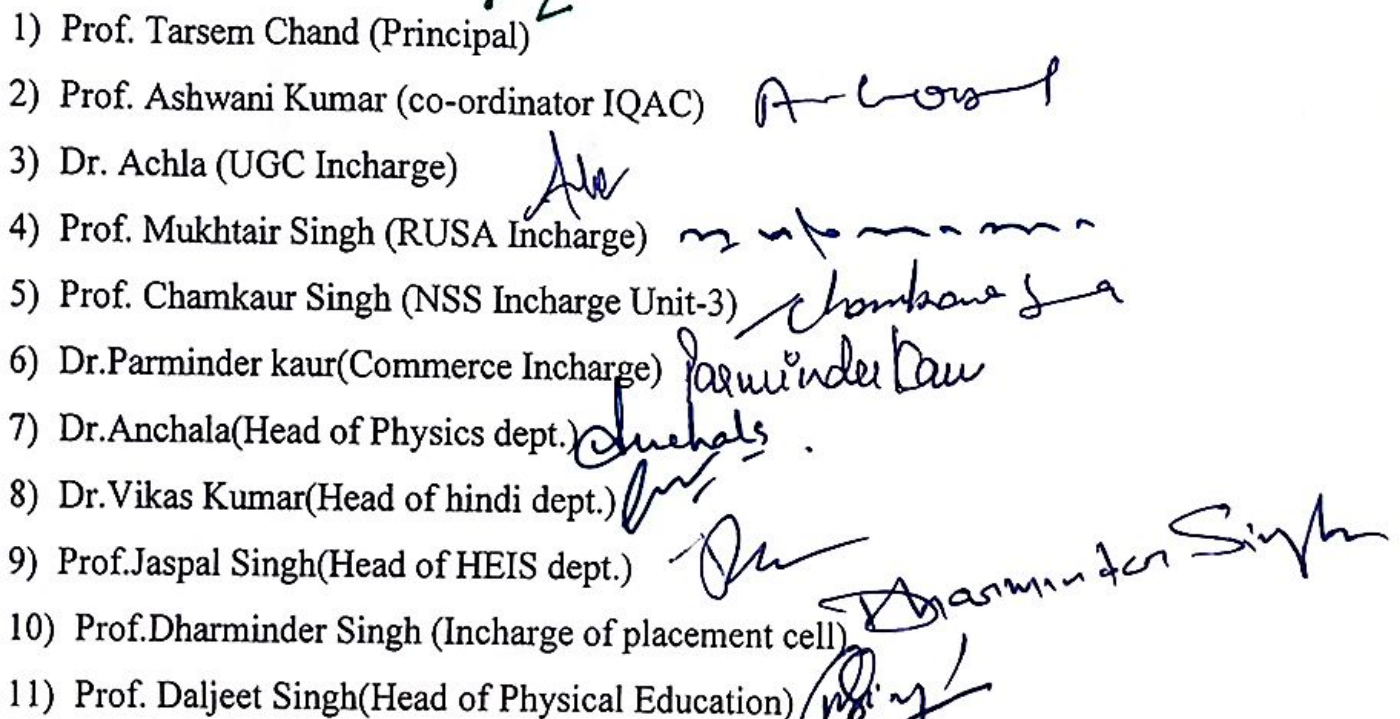 1) Prof. Tarsem Chand (Principal)
2) Prof. Ashwani Kumar (co-ordinator IQAC)
3) Dr. Achla (UGC Incharge)
4) Prof. Mukhtair Singh (RUSA Incharge)
5) Prof. Chamkaur Singh (NSS Incharge Unit-3)
6) Dr.Parminder kaur(Commerce Incharge) Parminder Kaur
7) Dr.Anchala(Head of Physics dept.) Anchala
8) Dr.Vikas Kumar(Head of hindi dept.)
9) Prof.Jaspal Singh(Head of HEIS dept.)
10) Prof.Dharminder Singh (Incharge of placement cell) Dharminder Singh
11) Prof. Daljeet Singh(Head of Physical Education)